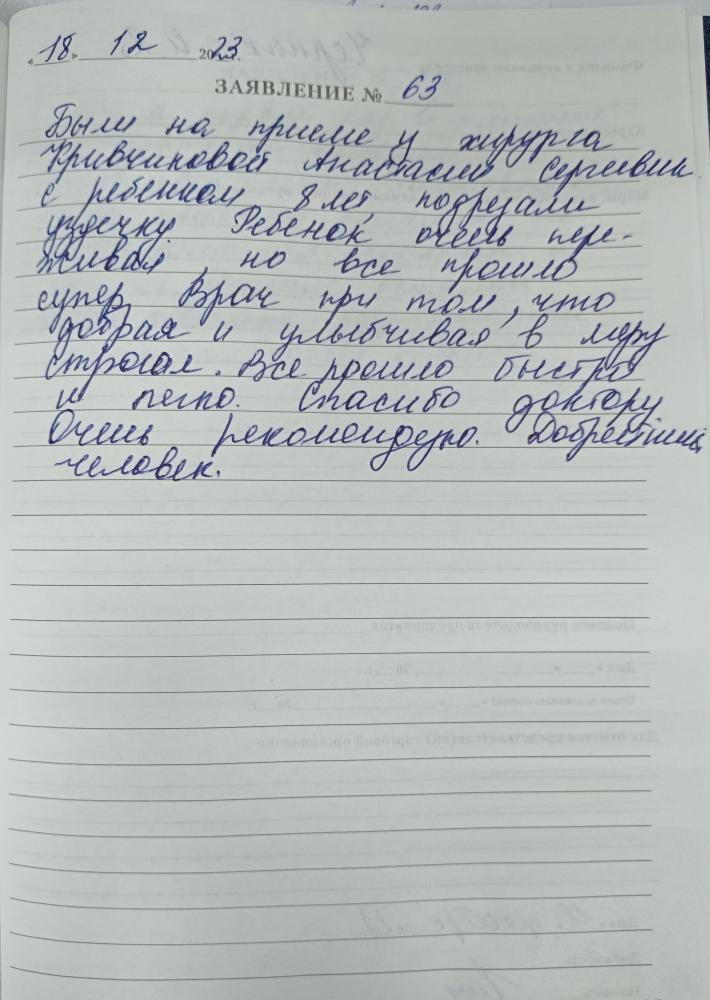 «18» 12 2023 г.
ЗАЯВЛЕНИЕ № 63
Были на приеме у хирурга
Кривчиковой Анастасии Сергеевны
с ребенком 8 лет, подрезали
уздечку. Ребенок очень пере-
живал, но все прошло
супер. Врач при том, что
добрая и улыбчивая в меру
строгая. Все прошло быстро
и легко. Спасибо доктору
Очень рекомендую. Добрейший
человек.